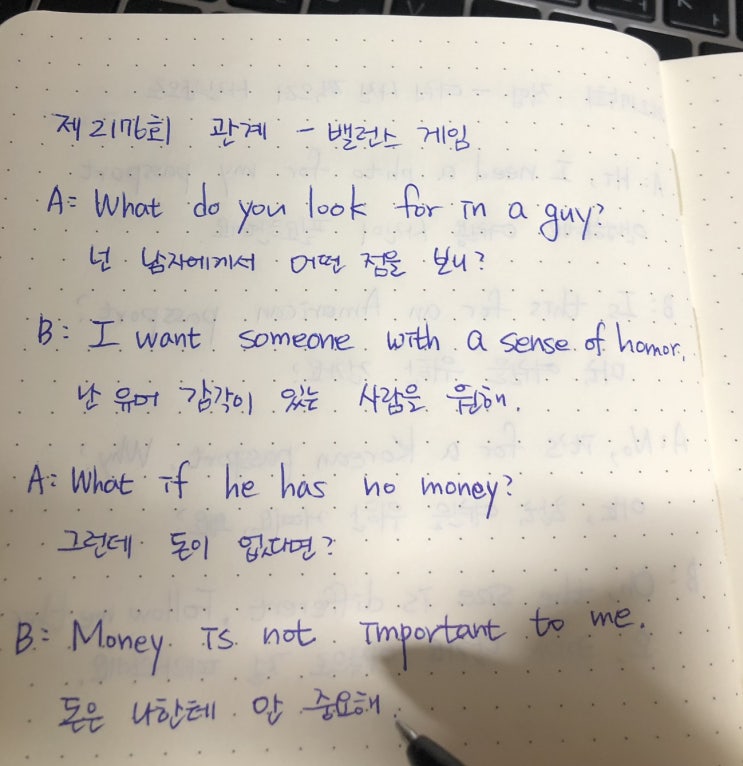 제2176회 관계 - 밸런스 게임
A: What do you look for in a guy?
넌 남자에게서 어떤 점을 보니?
B: I want someone with a sense of homor.
난 유머 감각이 있는 사람을 원해.
A: What if he has no money?
그런데 돈이 없다면?
B: Money is not important to me.
돈은 나한테 안 중요해.